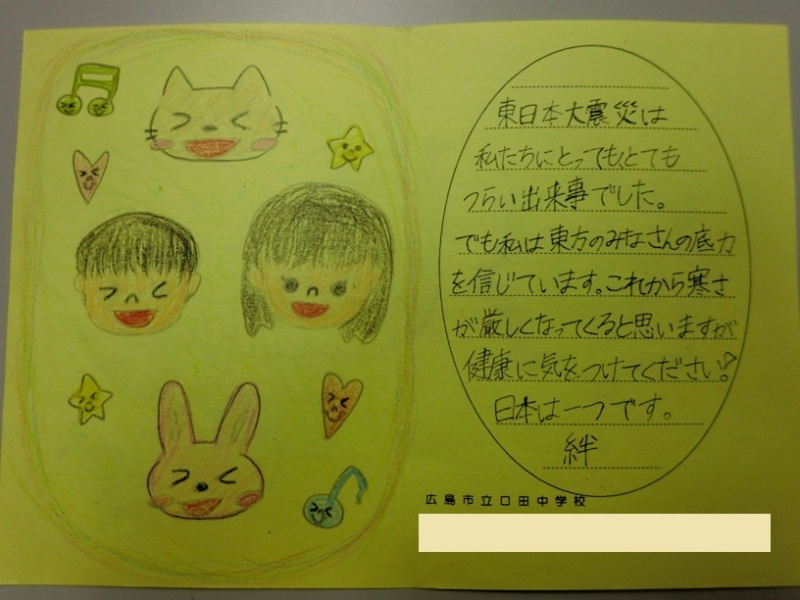 東日本大震災は
私たちにとってもとても
つらい出来事でした。
でも私は東方のみなさんの底力
を信じています。これから寒さ
が厳しくなってくると思いますが
健康に気をつけてください!
日本は一つです。
絆
広島市立口田中学校